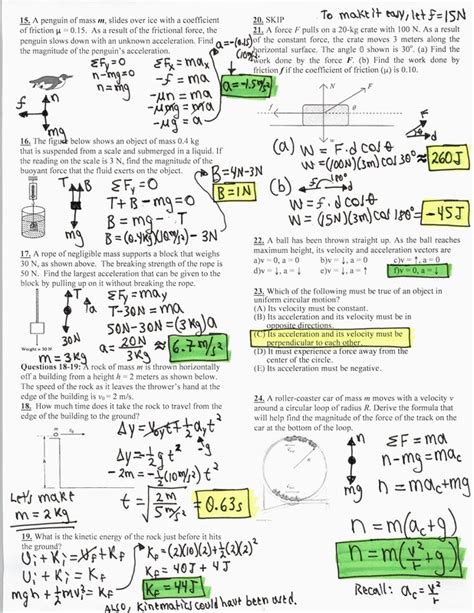 15. A penguin of mass m, slides over ice with a coefficient
of friction μ = 0.15. As a result of the frictional force, the
penguin slows down with an unknown acceleration. Find
the magnitude of the penguin's acceleration.
ΣFy=0
n-mg=0
n=mg
ΣFx=max
-f=ma
-μn=ma
-μmg=ma
-μg=a
a=-(0.15)
(10m/s²)
a=-1.5m/s²
f
n
mg
16. The figure below shows an object of mass 0.4 kg
that is suspended from a scale and submerged in a liquid. If
the reading on the scale is 3 N, find the magnitude of the
buoyant force that the fluid exerts on the object.
T B
mg
ΣFy=0
T+B-mg=0
B=mg-T
B=(0.4kg)(10m/s²)-3N
B=4N-3N
B=1N
17. A rope of negligible mass supports a block that weighs
30 N, as shown above. The breaking strength of the rope is
50 N. Find the largest acceleration that can be given to the
block by pulling up on it without breaking the rope.
Weight = 30 N
m=3kg
T
30N
ΣFy=may
T-30N=ma
50N-30N=(3kg)a
a=20N/3kg≈6.7m/s²
Questions 18-19: A rock of mass m is thrown horizontally
off a building from a height h = 2 meters as shown below.
The speed of the rock as it leaves the thrower's hand at the
edge of the building is v₀ = 2 m/s.
18. How much time does it take the rock to travel from the
edge of the building to the ground?
Δy=v₀yt+½ayt²
Δy=-½gt²
-2m=-½(10m/s²)t²
t=√2m/5m/s²=0.63s
Let's make
m=2kg
19. What is the kinetic energy of the rock just before it hits
the ground?
Ui+Ki=Uf+Kf
Ui+Ki=Kf
mgh+½mv²=Kf
Kf=(2)(10)(2)+½(2)(2)²
Kf=40J+4J
Kf=44J
Also, kinematics could have been used.
20. SKIP
To make it easy, let f=15N
21. A force F pulls on a 20-kg crate with 100 N. As a result
of the constant force, the crate moves 3 meters along the
horizontal surface. The angle θ shown is 30°. (a) Find the
work done by the force F. (b) Find the work done by
friction f if the coefficient of friction (μ) is 0.10.
N
F
f
θ
(a) W=F·d cosθ
W=(100N)(3m)cos30°≈260J
(b) W=f·d cosθ
W=(15N)(3m)cos180°=-45J
22. A ball has been thrown straight up. As the ball reaches
maximum height, its velocity and acceleration vectors are
a)v = 0, a = 0 b)v = ↓, a = 0 c)v = ↑, a = 0
d)v = ↓, a = ↓ e)v = ↓, a = ↑ f)v = 0, a = ↓
23. Which of the following must be true of an object in
uniform circular motion?
(A) Its velocity must be constant.
(B) Its acceleration and its velocity must be in
opposite directions.
(C) Its acceleration and its velocity must be
perpendicular to each other.
(D) It must experience a force away from the
center of the circle.
(E) Its acceleration must be negative.
24. A roller-coaster car of mass m moves with a velocity v
around a circular loop of radius R. Derive the formula that
will help find the magnitude of the force of the track on the
car at the bottom of the loop.
n
mg
ΣF=ma
n-mg=mac
n=mac+mg
n=m(ac+g)
n=m(v²/r+g)
Recall: ac=v²/r